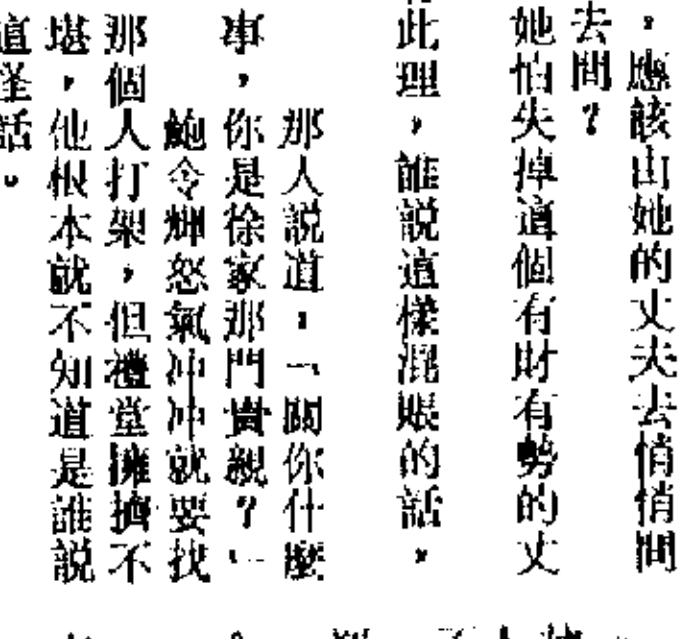 ，應該由她的丈夫去悄悄問
去問？
她怕失掉這個有財有勢的丈
此理，誰說這樣混賬的話，
那人說道：「關你什麼
事，你是徐家那門貴親？」
鮑令輝怒氣冲冲就要找
那個人打架，但禮堂擁擠不
堪，他根本就不知道是誰說
這怪話。